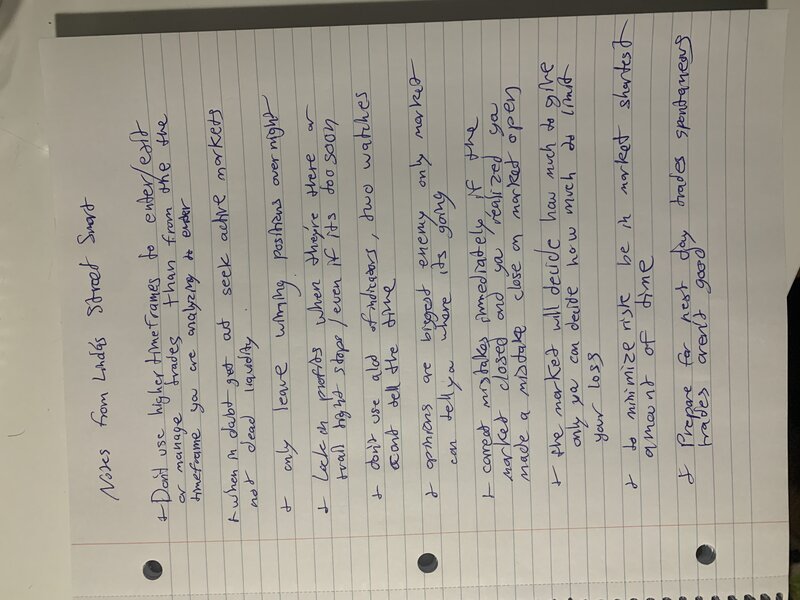 Notes from Linda's Street Smart
+ Don't use higher timeframes to enter/exit
or manage trades than from the the
timeframe you are analyzing to enter
+ when in dabt get at seek active markets
not dead liquidity.
+ only leave winning positions over night
+ Lock in profits when they're there or
trail tight stops / even if its too soon
+ don't use alot of indicators, two watches
cant tell the time
+ opinions are biggest enemy only market
can tell ya where its going
+ correct mistakes immediately if the
market closed and ya realized ya
made a mistake close on market open
+ the market will decide how much to give
only ya can decide how much to limit
your loss
+ to minimize risk be in market shortest
amount of time
+ Prepare for next day trades spontaneous
trades aren't good